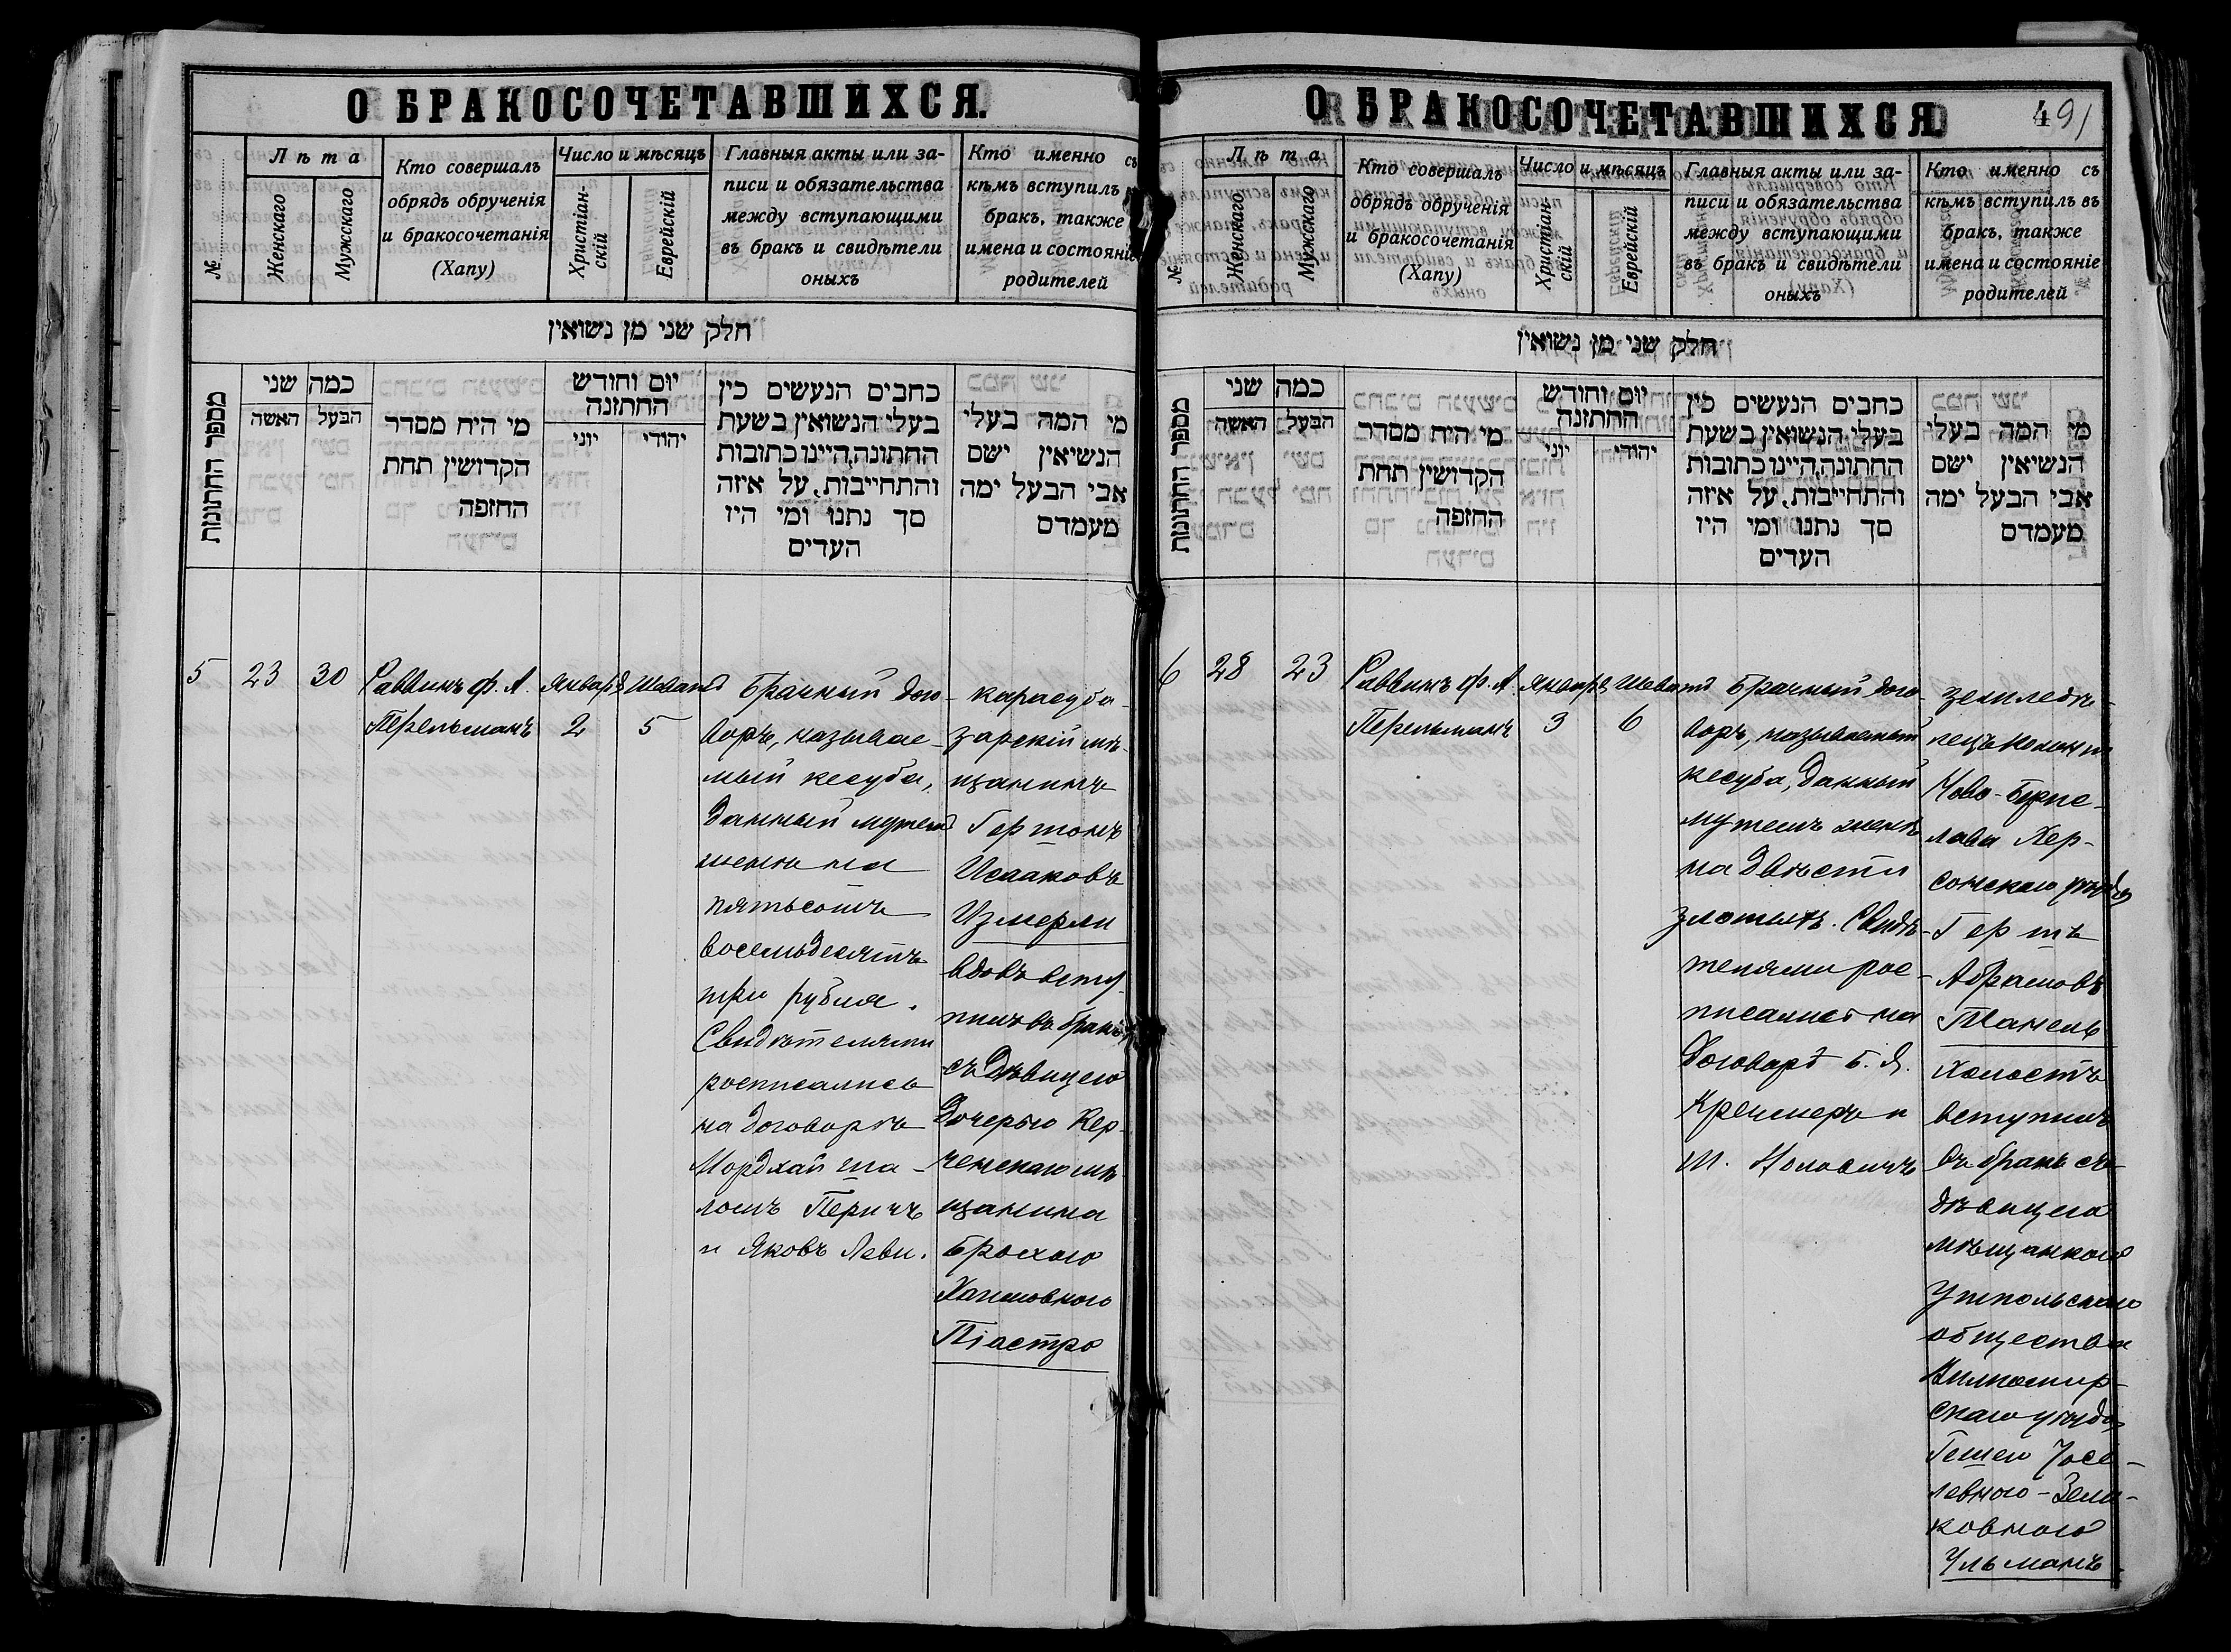 О БРАКОСОЧЕТАВШИХСЯ.
№
Лѣта
Женскаго
Мужскаго
Кто совершалъ
обрядъ обрученія
и бракосочетанія
(Хапу)
Число и мѣсяцъ
Христіан-
скій
Еврейскій
Главныя акты или за-
писи и обязательства
между вступающими
въ бракъ и свидѣтели
оныхъ
Кто именно съ
кѣмъ вступилъ
бракъ, также
имена и состояніе
родителей
חלק שני מן נשואין
מספר החתונות
כמה שני
האשה
הבעל
מי היח מסדר
הקדושין תחת
החזפה
יום וחודש
החתזנה
יוני
יהודי
כחבים הנעשים כין
בעלי הנשואין בשעת
החתונה, היינו כתובות
והתחייבות, על איזה
סך נתנו ומי היז
העדים
מי המה בעלי
הנשיאין ישם
אבי הבעל ימה
מעמדם
5
23
30
Раввинъ Ф. А.
Перельманъ
Январь
2
Шеватъ
5
Брачный дого-
воръ, называе-
мый кесуба,
данный мужемъ
женѣ на
пятьсотъ
восемьдесятъ
три рубля.
Свидѣтелями
росписались
на договорѣ
Мордхай Ша-
ломъ Перичъ
и Яковъ Леви.
карасуба-
зарскій мѣ-
щанинъ
Гершонъ
Исааковъ
Измерли
вдовъ всту-
пилъ въ бракъ
съ дѣвицею
дочерью Кер-
ченскаго мѣ-
щанина
Брохою
Хаимовною
Піастро
О БРАКОСОЧЕТАВШИХСЯ
491
№
Лѣта
Женскаго
Мужскаго
Кто совершалъ
обрядъ обрученія
и бракосочетанія
(Хапу)
Число и мѣсяцъ
Христіан-
скій
Еврейскій
Главныя акты или за-
писи и обязательства
между вступающими
въ бракъ и свидѣтели
оныхъ
Кто именно съ
кѣмъ вступилъ въ
бракъ, также
имена и состояніе
родителей
חלק שני מן נשואין
מספר החתונות
כמה שני
האשה
הבעל
מי היח מסדר
הקדושין תחת
החזפה
יום וחודש
החתזנה
יוני
יהודי
כחבים הנעשים כין
בעלי הנשואין בשעת
החתונה, היינו כתובות
והתחייבות, על איזה
סך נתנו ומי היז
העדים
מי המה בעלי
הנשיאין ישם
אבי הבעל ימה
מעמדם
6
28
23
Раввинъ Ф. А.
Перельманъ
Январь
3
Шеватъ
6
Брачный дого-
воръ, называемый
кесуба, данный
мужемъ женѣ
на двѣсти
злотыхъ. Свидѣ-
телями рос-
писались на
договорѣ Б. Я.
Кремеръ и
земледѣ-
лецъ колоніи
Ново-Берис-
лава Хер-
сонскаго уѣзда
Абрамовъ
холостъ
вступилъ
въ бракъ съ
дѣвицею
мѣщанкою
общества
скаго уѣзда
ковною
Ульманъ.